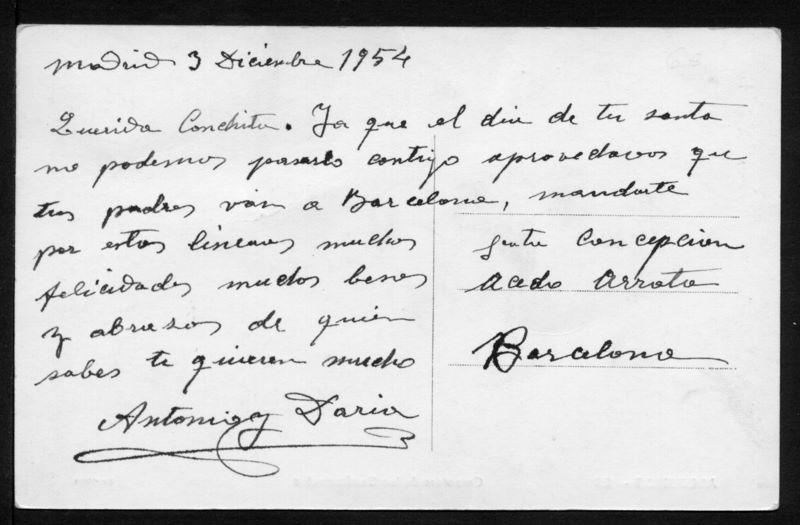 Madrid 3 Diciembre 1954
Querida Conchita. Ya que el dia de tu santo
no podemos pasarlo contigo aprovechamos que
tus padres van a Barcelona, mandarte
por estas lineas muchas
felicidades muchos besos
y abrazos de quien
sabes te quieren mucho
Antonia y Daria
Concepcion
Acedo Arrata
Barcelona